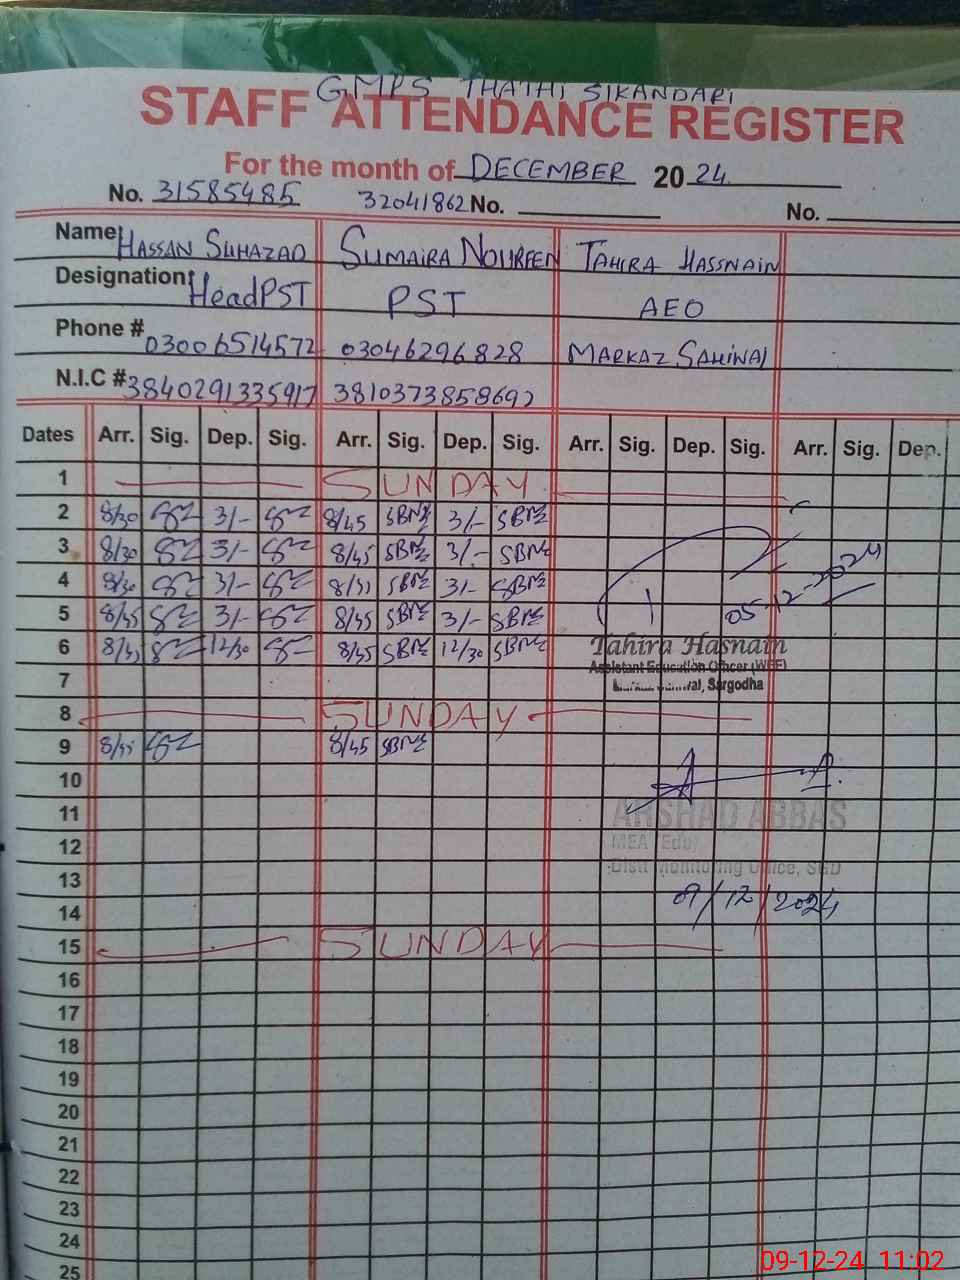 GMPS THATHI SIKANDARI
STAFF ATTENDANCE REGISTER
For the month of DECEMBER 2024
No. 31585485 32041862 No. No.
Name: HASSAN SHAHZAD SUMAIRA NOUREEN TAHIRA HASSNAIN
Designation: Head PST PST AEO
Phone # 03006514572 03046296828 MARKAZ SAHIWAL
N.I.C # 3840291335917 3810373858692
Dates Arr. Sig. Dep. Sig. Arr. Sig. Dep. Sig. Arr. Sig. Dep. Sig. Arr. Sig. Dep.
1 SUNDAY
2 8/30 3/- 8/45 3/-
3 8/30 3/- 8/45 3/-
4 8/30 3/- 3/-
5 8/45 3/- 8/45 3/-
05-12-2024
6 8/45 12/30 8/45 12/30
Tahira Hasnain
Assistant Education Officer (WEE)
Sargodha
7
8 SUNDAY
9 8/45 8/45
10
11
ARSHAD ABBAS
MEA (Edu)
12
Distt Monitoring Office, SGD
13
14 09/12/2024
15 SUNDAY
16
17
18
19
20
21
22
23
24
25
09-12-24 11:02